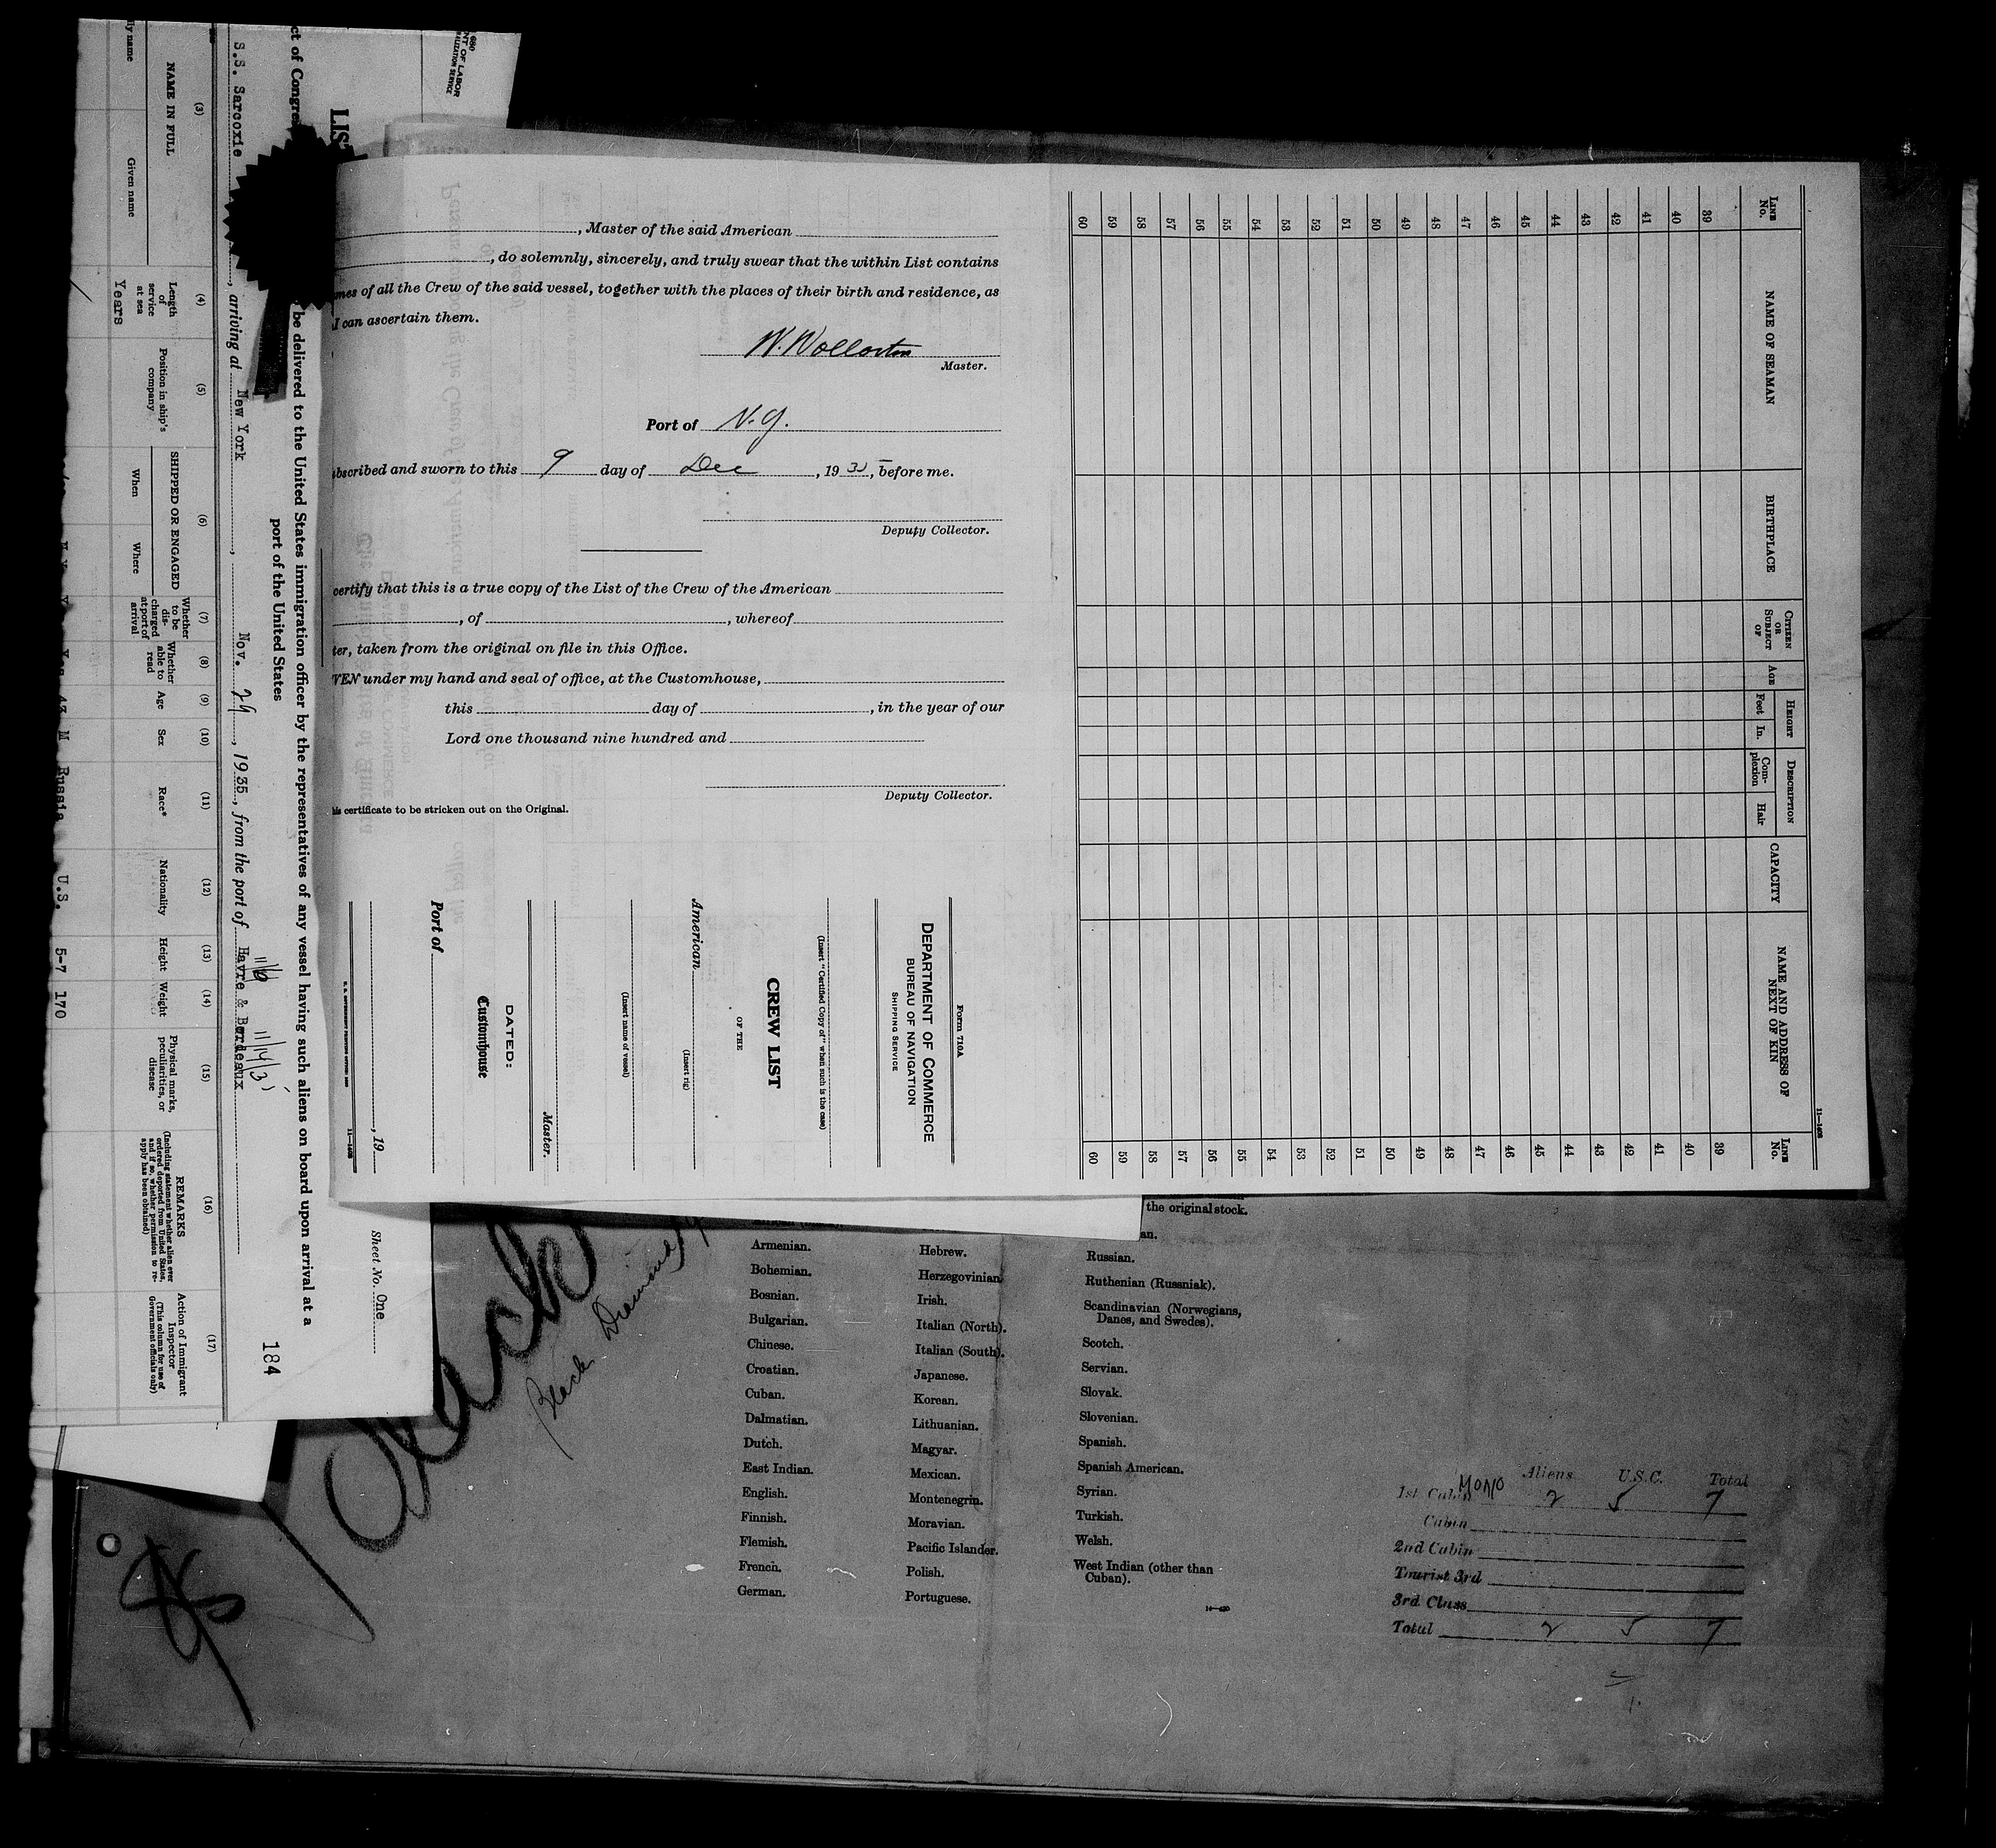 680
NT OF LABOR
RALIZATION SERVICE
LIS
ct of Congre
be delivered to the United States immigration officer by the representatives of any vessel having such aliens on board upon arrival at a
port of the United States
Sheet No. One
184
S.S. Sarcoxie, arriving at New York, Nov. 29, 1935, from the port of Havre & Bordeaux
11/6
(3)
(4)
(5)
(6)
(7)
(8)
(9)
(10)
(11)
(12)
(13)
(14)
(15)
(16)
(17)
NAME IN FULL
ly name
Given name
Length of service at sea
Position in ship's company
SHIPPED OR ENGAGED
When
Where
Whether to be discharged at port of arrival
Whether able to read
Age
Sex
Race*
Nationality
Height
Weight
Physical marks, peculiarities, or disease
REMARKS
(Including statement whether alien ever ordered deported from United States, and if so, whether permission to re-apply has been obtained)
Action of Immigrant Inspector
(This column for use of Government officials only)
Years
43 M Russia U.S. 5-7 170
, Master of the said American
, do solemnly, sincerely, and truly swear that the within List contains
mes of all the Crew of the said vessel, together with the places of their birth and residence, as
I can ascertain them.
W. Wollaston
Master.
Port of N.Y.
bscribed and sworn to this 9 day of Dec, 19 35, before me.
Deputy Collector.
certify that this is a true copy of the List of the Crew of the American
, of , whereof
ter, taken from the original on file in this Office.
VEN under my hand and seal of office, at the Customhouse,
this day of , in the year of our
Lord one thousand nine hundred and
Deputy Collector.
his certificate to be stricken out on the Original.
Form 710A
DEPARTMENT OF COMMERCE
BUREAU OF NAVIGATION
SHIPPING SERVICE
(Insert "Certified Copy of" when such is the case)
CREW LIST
OF THE
American
(Insert rig)
(Insert name of vessel)
Master.
DATED:
Customhouse
Port of
, 19
11—1408
LINE No.
NAME OF SEAMAN
BIRTHPLACE
CITIZEN OR SUBJECT OF
AGE
HEIGHT
Feet
In.
DESCRIPTION
Complexion
Hair
CAPACITY
NAME AND ADDRESS OF NEXT OF KIN
LINE No.
39 39
40 40
41 41
42 42
43 43
44 44
45 45
46 46
47 47
48 48
49 49
50 50
51 51
52 52
53 53
54 54
55 55
56 56
57 57
58 58
59 59
60 60
11—1408
the original stock.
Black Diamond
Armenian.
Bohemian.
Bosnian.
Bulgarian.
Chinese.
Croatian.
Cuban.
Dalmatian.
Dutch.
East Indian.
English.
Finnish.
Flemish.
French.
German.
Hebrew.
Herzegovinian.
Irish.
Italian (North).
Italian (South).
Japanese.
Korean.
Lithuanian.
Magyar.
Mexican.
Montenegrin.
Moravian.
Pacific Islander.
Polish.
Portuguese.
an.
Russian.
Ruthenian (Russniak).
Scandinavian (Norwegians,
Danes, and Swedes).
Scotch.
Servian.
Slovak.
Slovenian.
Spanish.
Spanish American.
Syrian.
Turkish.
Welsh.
West Indian (other than
Cuban).
Aliens U.S.C. Total
1st Cabin MONO 2 5 7
Cabin
2nd Cabin
Tourist 3rd
3rd Class
Total 2 5 7